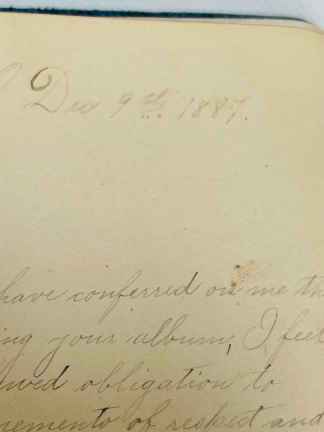 Dec 9th 1887.
have conferred on me th
ing your album, I feel
ewed obligation to
memento of respect and